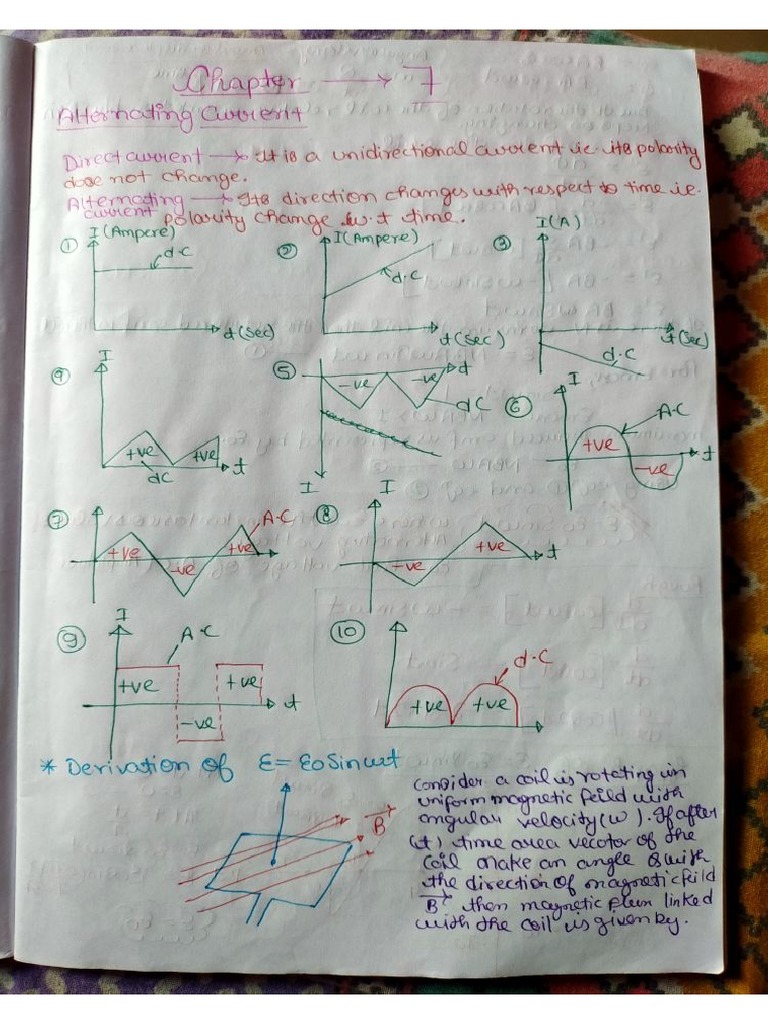 Chapter → 7
Alternating Current
Direct current → It is a unidirectional current i.e. its polarity
dose not change.
Alternating current → Its direction changes with respect to time i.e.
polarity change w.r.t time.
① I (Ampere) d.c t (sec)
② I (Ampere) d.c t (sec)
③ I (A) d.c t (sec)
④ I +ve +ve dc t
⑤ -ve -ve t dc I
⑥ I A.C +ve -ve t
⑦ +ve -ve +ve A.C
⑧ I -ve +ve t
⑨ I A.C +ve -ve +ve t
⑩ d.c +ve +ve
* Derivation of ε = ε0 Sin ωt
B→
Consider a coil is rotating in
uniform magnetic feild with
angular velocity (w). If after
(t) time area vecotor of the
coil make an angle θ with
the direction of magnetic feild
B→ then magnetic flux linked
with the coil is given by.